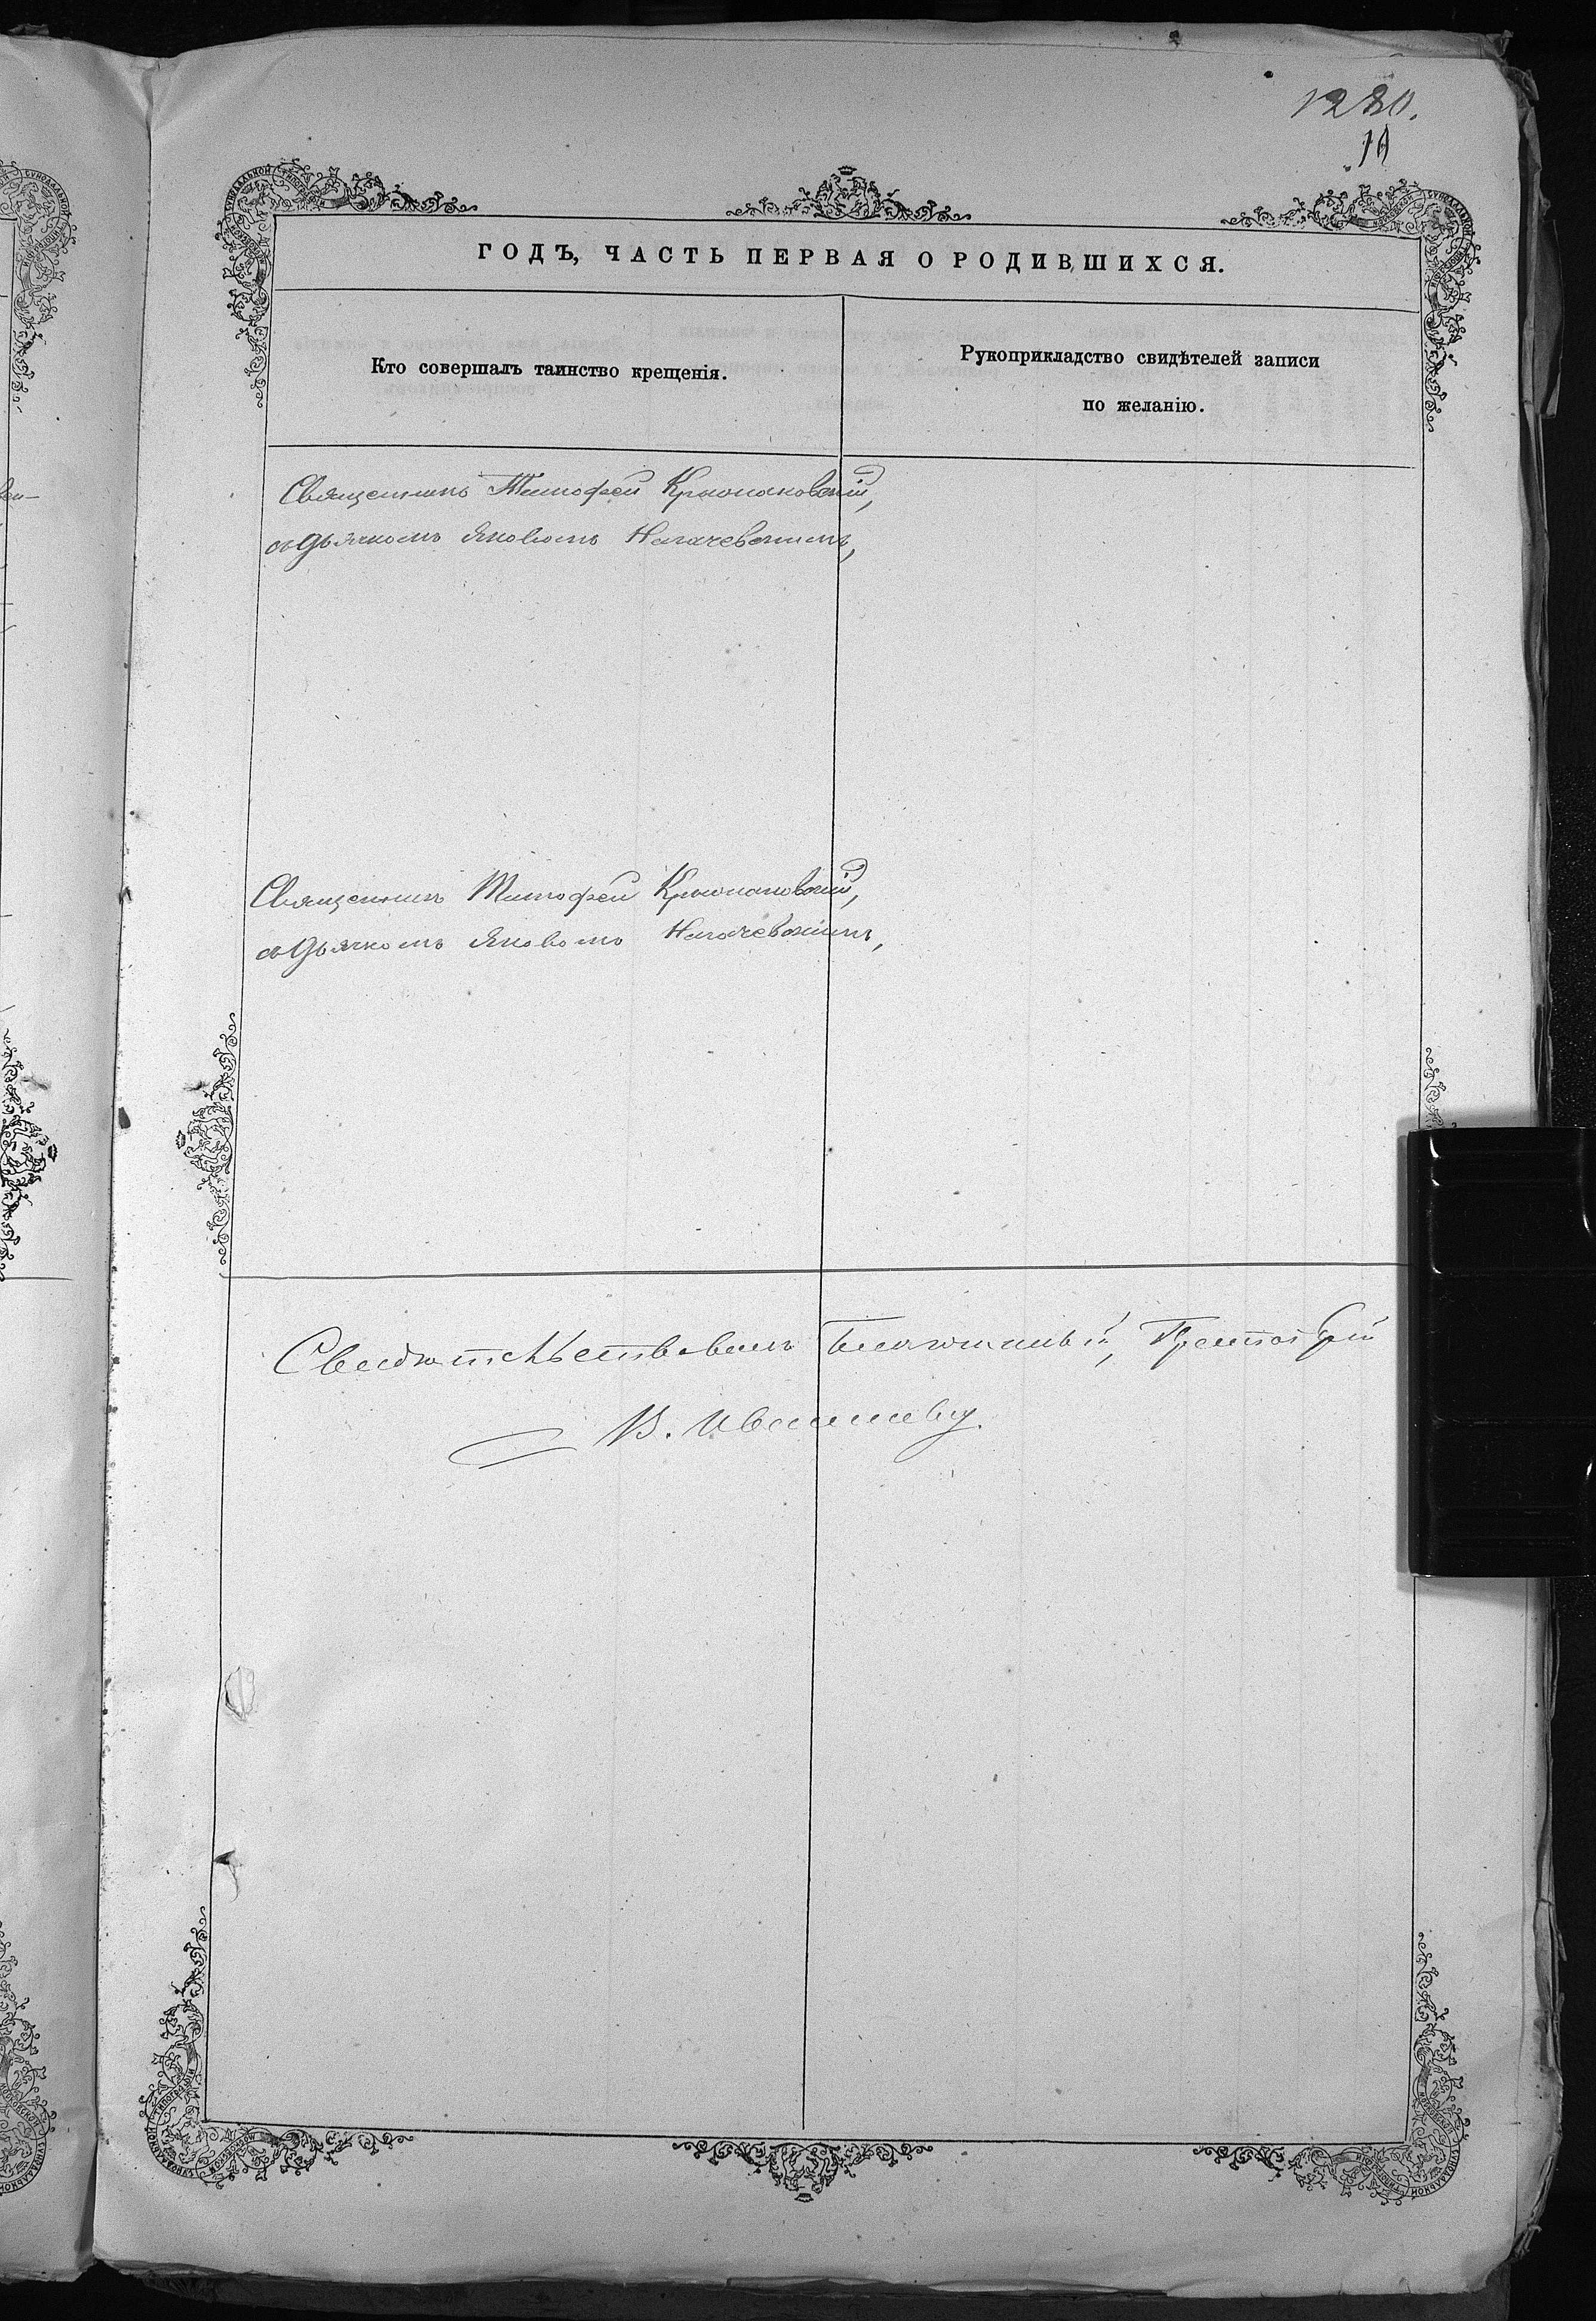 1280.
ГОДЪ, ЧАСТЬ ПЕРВАЯ О РОДИВШИХСЯ.
Кто совершалъ таинство крещенія.
Рукоприкладство свидѣтелей записи
по желанію.
Священникъ Тимофей
съ дьячкомъ Яковомъ
Священникъ Тимофей
съ дьячкомъ Яковомъ
Свидѣтельствовалъ Благочинный, Протоіерей
В.